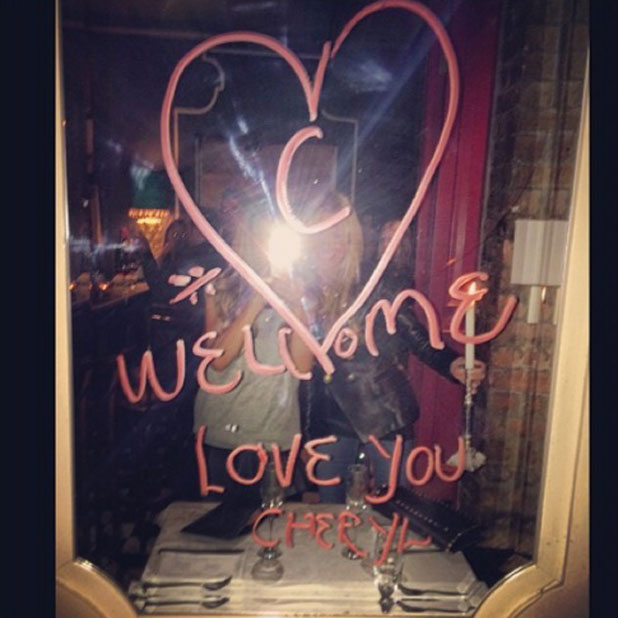 C
WELLOME
LOVE YOU
CHERYL